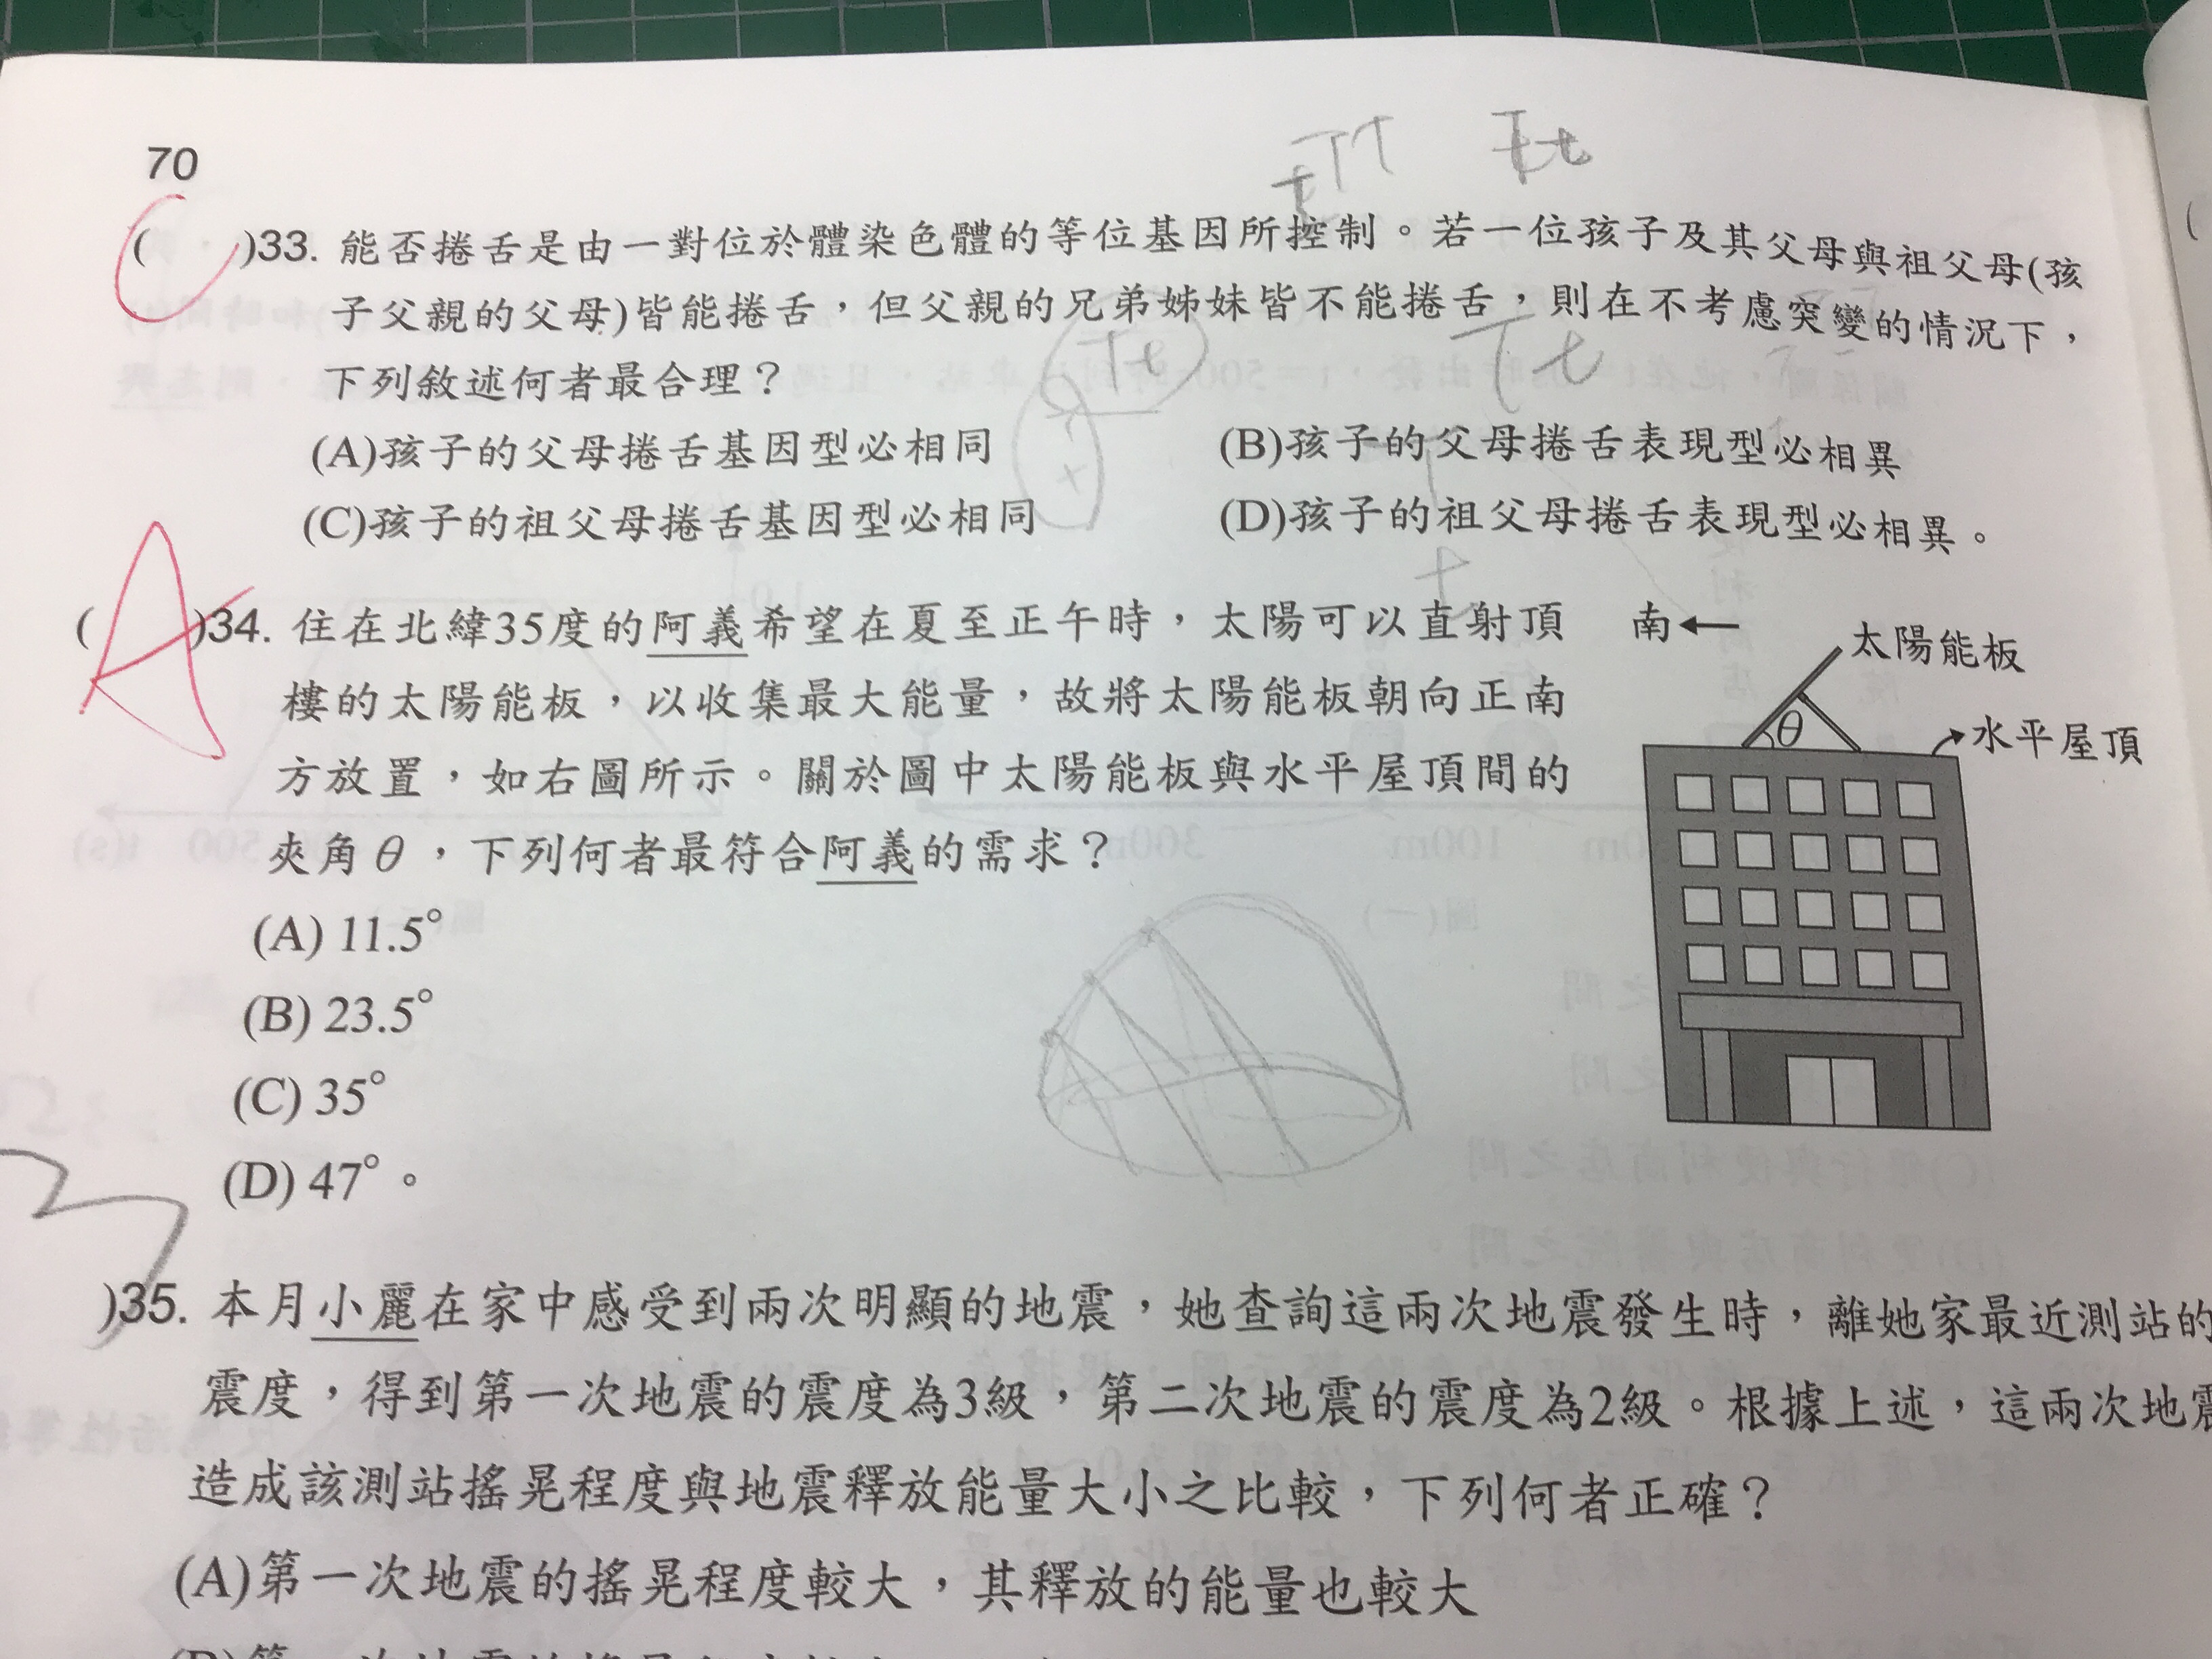 70
TT Tt
t
C
( )33. 能否捲舌是由一對位於體染色體的等位基因所控制。若一位孩子及其父母與祖父母(孩
子父親的父母)皆能捲舌，但父親的兄弟姊妹皆不能捲舌，則在不考慮突變的情況下，
Tt Tt
下列敘述何者最合理？
(A)孩子的父母捲舌基因型必相同 (B)孩子的父母捲舌表現型必相異
(C)孩子的祖父母捲舌基因型必相同 (D)孩子的祖父母捲舌表現型必相異。
A
( )34. 住在北緯35度的阿義希望在夏至正午時，太陽可以直射頂
樓的太陽能板，以收集最大能量，故將太陽能板朝向正南
方放置，如右圖所示。關於圖中太陽能板與水平屋頂間的
夾角θ，下列何者最符合阿義的需求？
(A) 11.5°
(B) 23.5°
(C) 35°
(D) 47°。
南←
太陽能板
θ
水平屋頂
)35. 本月小麗在家中感受到兩次明顯的地震，她查詢這兩次地震發生時，離她家最近測站的
震度，得到第一次地震的震度為3級，第二次地震的震度為2級。根據上述，這兩次地震
造成該測站搖晃程度與地震釋放能量大小之比較，下列何者正確？
(A)第一次地震的搖晃程度較大，其釋放的能量也較大